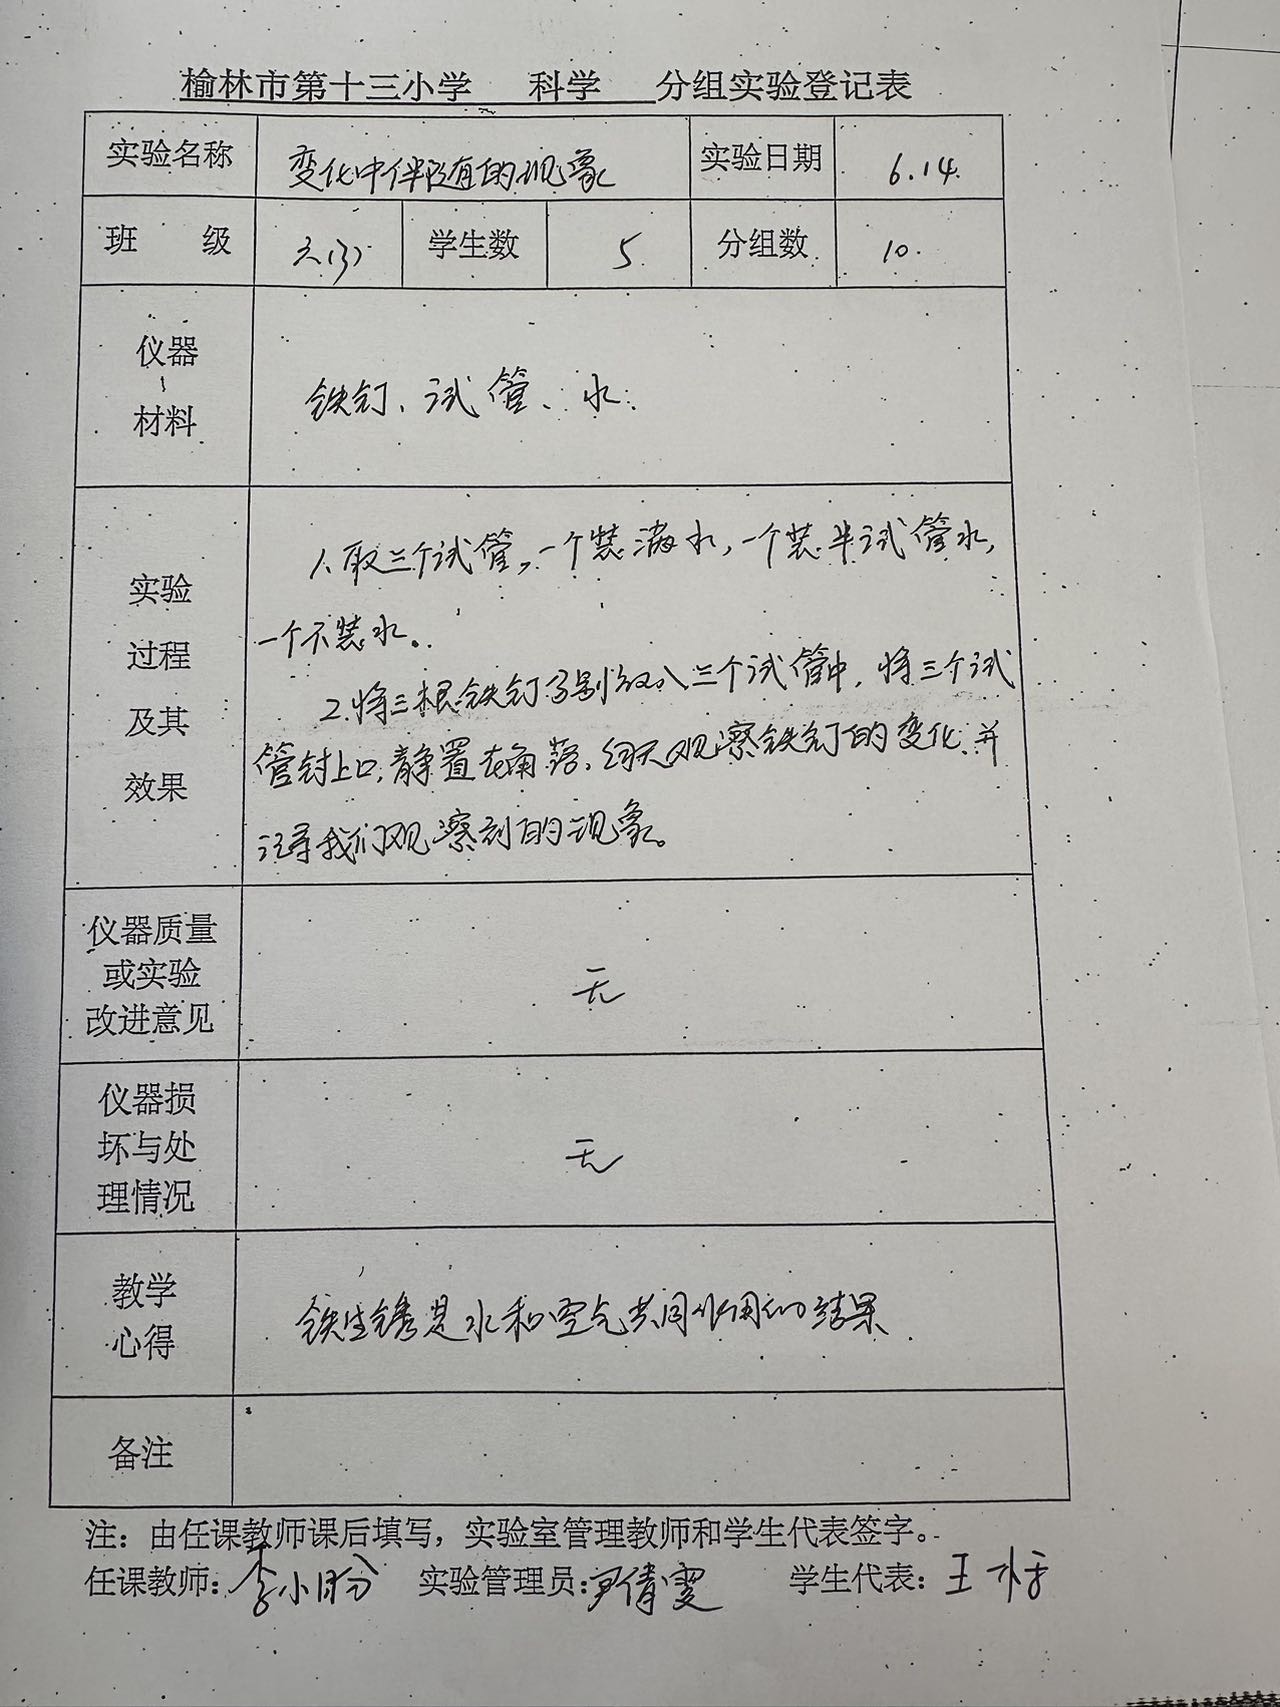 榆林市第十三小学 科学 分组实验登记表
实验名称 变化中伴随有的现象 实验日期 6.14.
班 级 六(3) 学生数 5 分组数 10.
仪器
材料
铁钉、试管、水.
实验
过程
及其
效果
1.取三个试管,一个装满水,一个装半试管水,
一个不装水。
2.将三根铁钉分别放入三个试管中,将三个试
管封上口,静置在角落,每天观察铁钉的变化并
记录我们观察到的现象。
仪器质量
或实验
改进意见
无
仪器损
坏与处
理情况
无
教学
心得
铁生锈是水和空气共同作用的结果
备注
注:由任课教师课后填写,实验室管理教师和学生代表签字。
任课教师:李小 实验管理员:倩雯 学生代表:王